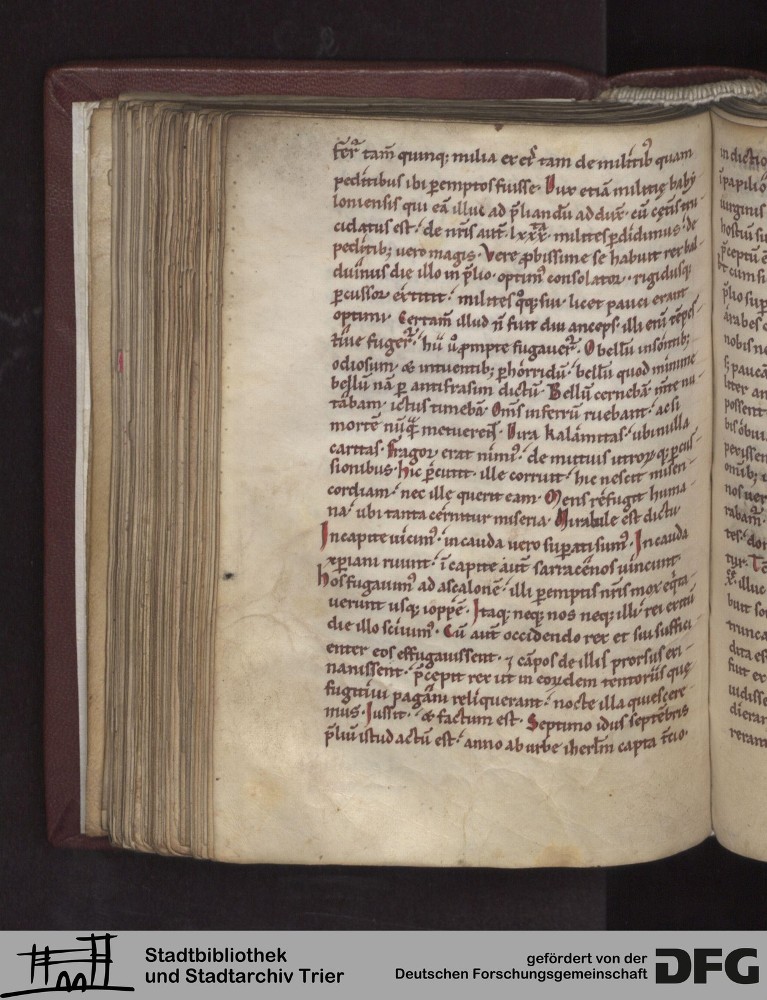 fer̄ tam̄ quinq; milia ex eis̄ tam de militib᷒ quam
peditibus ibi ꝑemptos fuisse. Dux etiā militię baby
loniensis qui eā illuc ad p̄liandū adduxᷓ. cū cęteris tru
cidatus est. de nr̄is aut̄ lxxx milites ꝑdidimus. de
peditib; vero magis. Vere ꝓbissime se habuit rex bal
duinus die illo in p̄lio. optim᷒ consolator. rigidusq;
ꝑcussor extitit. milites q̊q; sui. licet pauci erant
optimi. Certam̄ illud n̄ fuit diu anceps. illi eni
tiue fuger̄. hii ꝓmpte fugauer̄. O bellū insontib;
odiosum. & intuentib; ꝑhorridū. bellū quod minime
bellū nā ꝑ antifrasim dictū. Bellū cernebā. mte nu
tabam. ictus timebā. Om̄s in ferrū ruebant. ac si
mortē nūquā metuerent. Dira kalamitas. ubi nulla
caritas. Fragor erat nimi᷒. de mutuis utroꝝq; ꝑcus
sionibus. Hic ꝑcutit. ille corruit. hic nescit miseri
cordiam. nec ille querit eam. Mens refugit huma
na. ubi tanta cernitur miseria. Mirabile est dictu
In capite uicim᷒. in cauda vero suꝑati sum᷒. In cauda
xp̄iani ruunt. ī capite aut̄ sarracenos uincunt.
hos fugauim᷒ ad ascalonē. illi ꝑemptis nr̄is mox eq̇ta
uerunt usq; ioppē. Itaq; neq; nos neq; illi rei exitū
die illo sciuim᷒. Cū aut̄ occidendo rex et sui suffici
enter eos effugauissent. ⁊ cāpos de illis prorsus exi
nanissent. p̄cepit rex ut in eoꝝdem tentoriis que
fugitiui pagani reliquerant. nocte illa quiescere
mus. Jussit. & factum est. Septimo idus septēbris
p̄liū istud actū est. anno ab urbe ihrl̄m capta t̄cio.
Stadtbibliothek
und Stadtarchiv Trier
gefördert von der
Deutschen Forschungsgemeinschaft
DFG